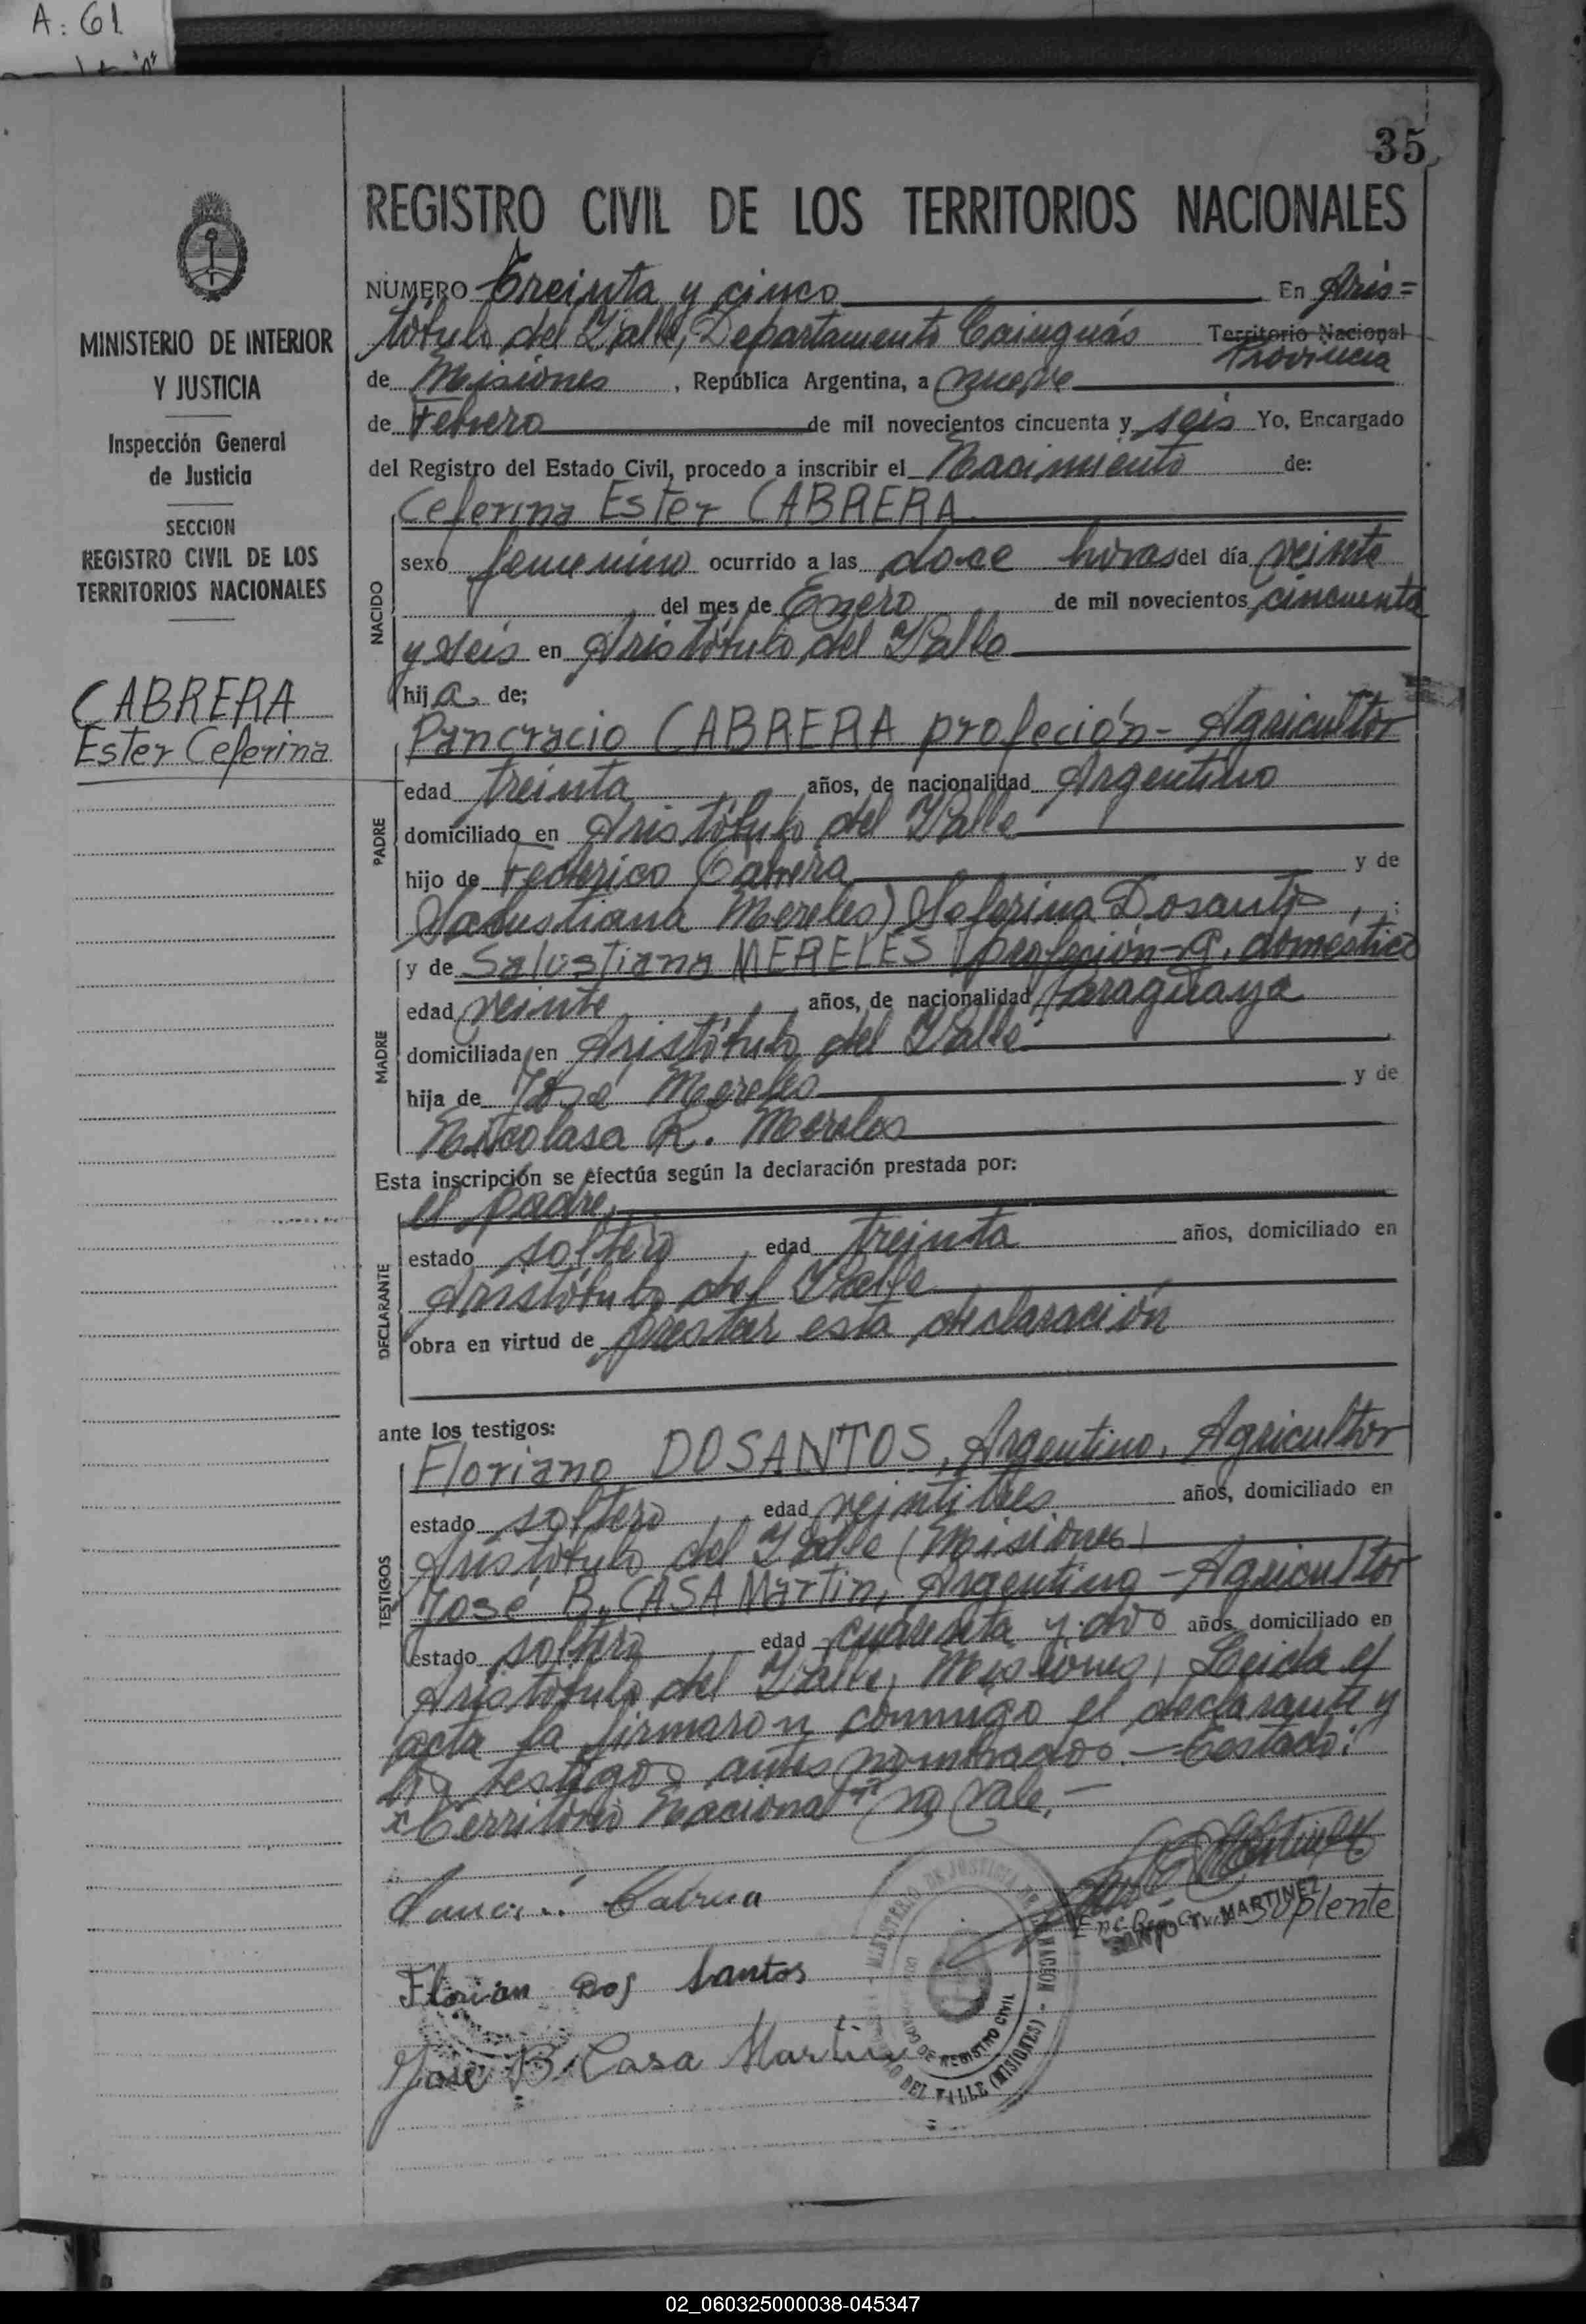 A: 61
35
REGISTRO CIVIL DE LOS TERRITORIOS NACIONALES
MINISTERIO DE INTERIOR
Y JUSTICIA
Inspección General
de Justicia
SECCION
REGISTRO CIVIL DE LOS
TERRITORIOS NACIONALES
CABRERA
Ester Ceferina
NUMERO Treinta y cinco En Aris=
tóbulo del Valle, Departamento Cainguás Territorio Nacional
Provincia
de Misiones, República Argentina, a nueve
de Febrero de mil novecientos cincuenta y seis Yo, Encargado
del Registro del Estado Civil, procedo a inscribir el Nacimiento de:
Ceferina Ester CABRERA
NACIDO
sexo femenino ocurrido a las doce horas del día veinte
del mes de Enero de mil novecientos cincuenta
y seis en Aristóbulo del Valle
hija de;
Pancracio CABRERA profeción - Agricultor
PADRE
edad treinta años, de nacionalidad Argentino
domiciliado en Aristóbulo del Valle
hijo de Federico Cabrera y de
Salustiana Mereles) Seferina Dosanto
y de Salustiana MERELES profeción - q. doméstico
MADRE
edad veinte años, de nacionalidad Paraguaya
domiciliada en Aristóbulo del Valle
hija de José Mereles y de
Nicolasa R. Mereles
Esta inscripción se efectúa según la declaración prestada por:
el padre
DECLARANTE
estado soltero edad treinta años, domiciliado en
Aristóbulo del Valle
obra en virtud de prestar esta declaración
ante los testigos:
Floriano DOSANTOS, Argentino, Agricultor
TESTIGOS
estado soltero edad veintitres años, domiciliado en
Aristóbulo del Valle (Misiones)
José B. CASA Martin, Argentino - Agricultor
estado soltero edad cuarenta y dos años, domiciliado en
Aristóbulo del Valle, Misiones, Leida el
acta la firmaron conmigo el declarante y
los testigos antes nombrados. - Testado:
"Territorio Nacional" no vale. -
Cabrera
Florian Dos Santos
José B. Casa Martin
MARTINEZ
Suplente
MINISTERIO DE JUSTICIA
NACION
DE REGISTRO CIVIL
DEL VALLE (MISIONES)
02_060325000038-045347